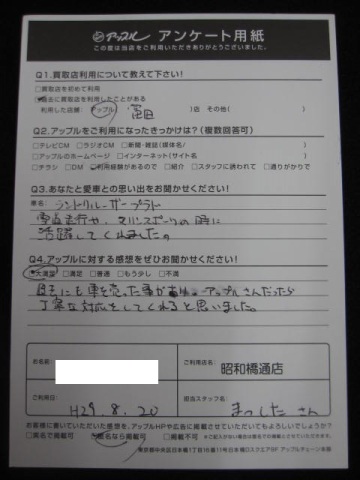 アップル アンケート用紙
この度は当店をご利用いただきありがとうございました。
Q1.買取店利用について教えて下さい!
□買取店を初めて利用
□過去に買取店を利用したことがある
利用した店舗: アップル 富田 店 その他( )
Q2.アップルをご利用になったきっかけは?(複数回答可)
□テレビCM □ラジオCM □新聞・雑誌(媒体名/ )
□アップルのホームページ □インターネット(サイト名 )
□チラシ □DM □ご利用経験があるので □紹介 □スタッフに誘われて □通りがかりで
Q3.あなたと愛車との思い出をお聞かせください!
車名: ランドクルーザープラド
雪道走行や、マリンスポーツの時に
活躍してくれました。
Q4.アップルに対する感想をぜひお聞かせください!
□大満足 □満足 □普通 □もう少し □不満
過去にも車を売った事があり、アップルさんだったら
丁寧な対応をしてくれると思いました。
お名前:
ご利用店名: 昭和橋通店
ご利用日: H29.8.20
担当スタッフ名: まつしたさん
お客様に書いていただいた感想を、アップルHPや広告に掲載させていただいてもよろしいでしょうか?
□実名で掲載可 □匿名なら掲載可 □掲載不可
東京都中央区日本橋1丁目16番11号日本橋Dスクエア9F アップルチェーン本部